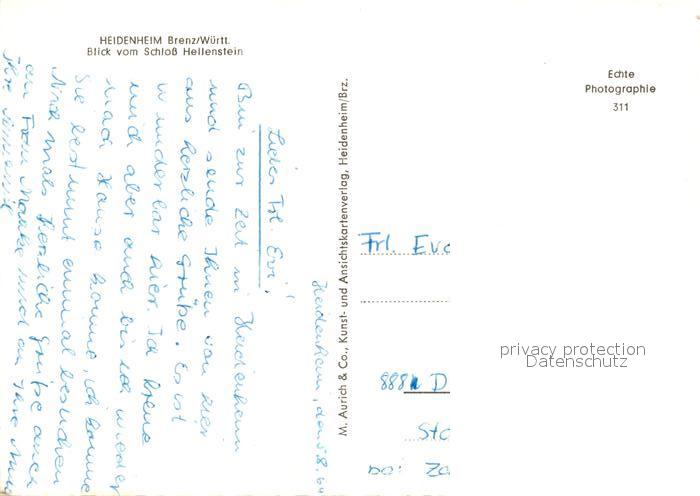 HEIDENHEIM Brenz/Württ.
Blick vom Schloß Hellenstein
Heidenheim, den 5.8.64
Liebes Frl. Evi!
Bin zur Zeit in Heidenheim
und sende Ihnen von hier
aus herzliche Grüße. Es ist
wunderbar hier. Ich freue
mich aber auch bis ich wieder
nach Hause komme, ich komme
Sie bestimmt einmal besuchen
Nochmals herzliche Grüße auch
an Frau und an Ihre
Ihre
M. Aurich & Co., Kunst- und Ansichtskartenverlag, Heidenheim/Brz.
Echte
Photographie
311
Frl. Eva
privacy protection
Datenschutz
888 D
Sta
bei: Za